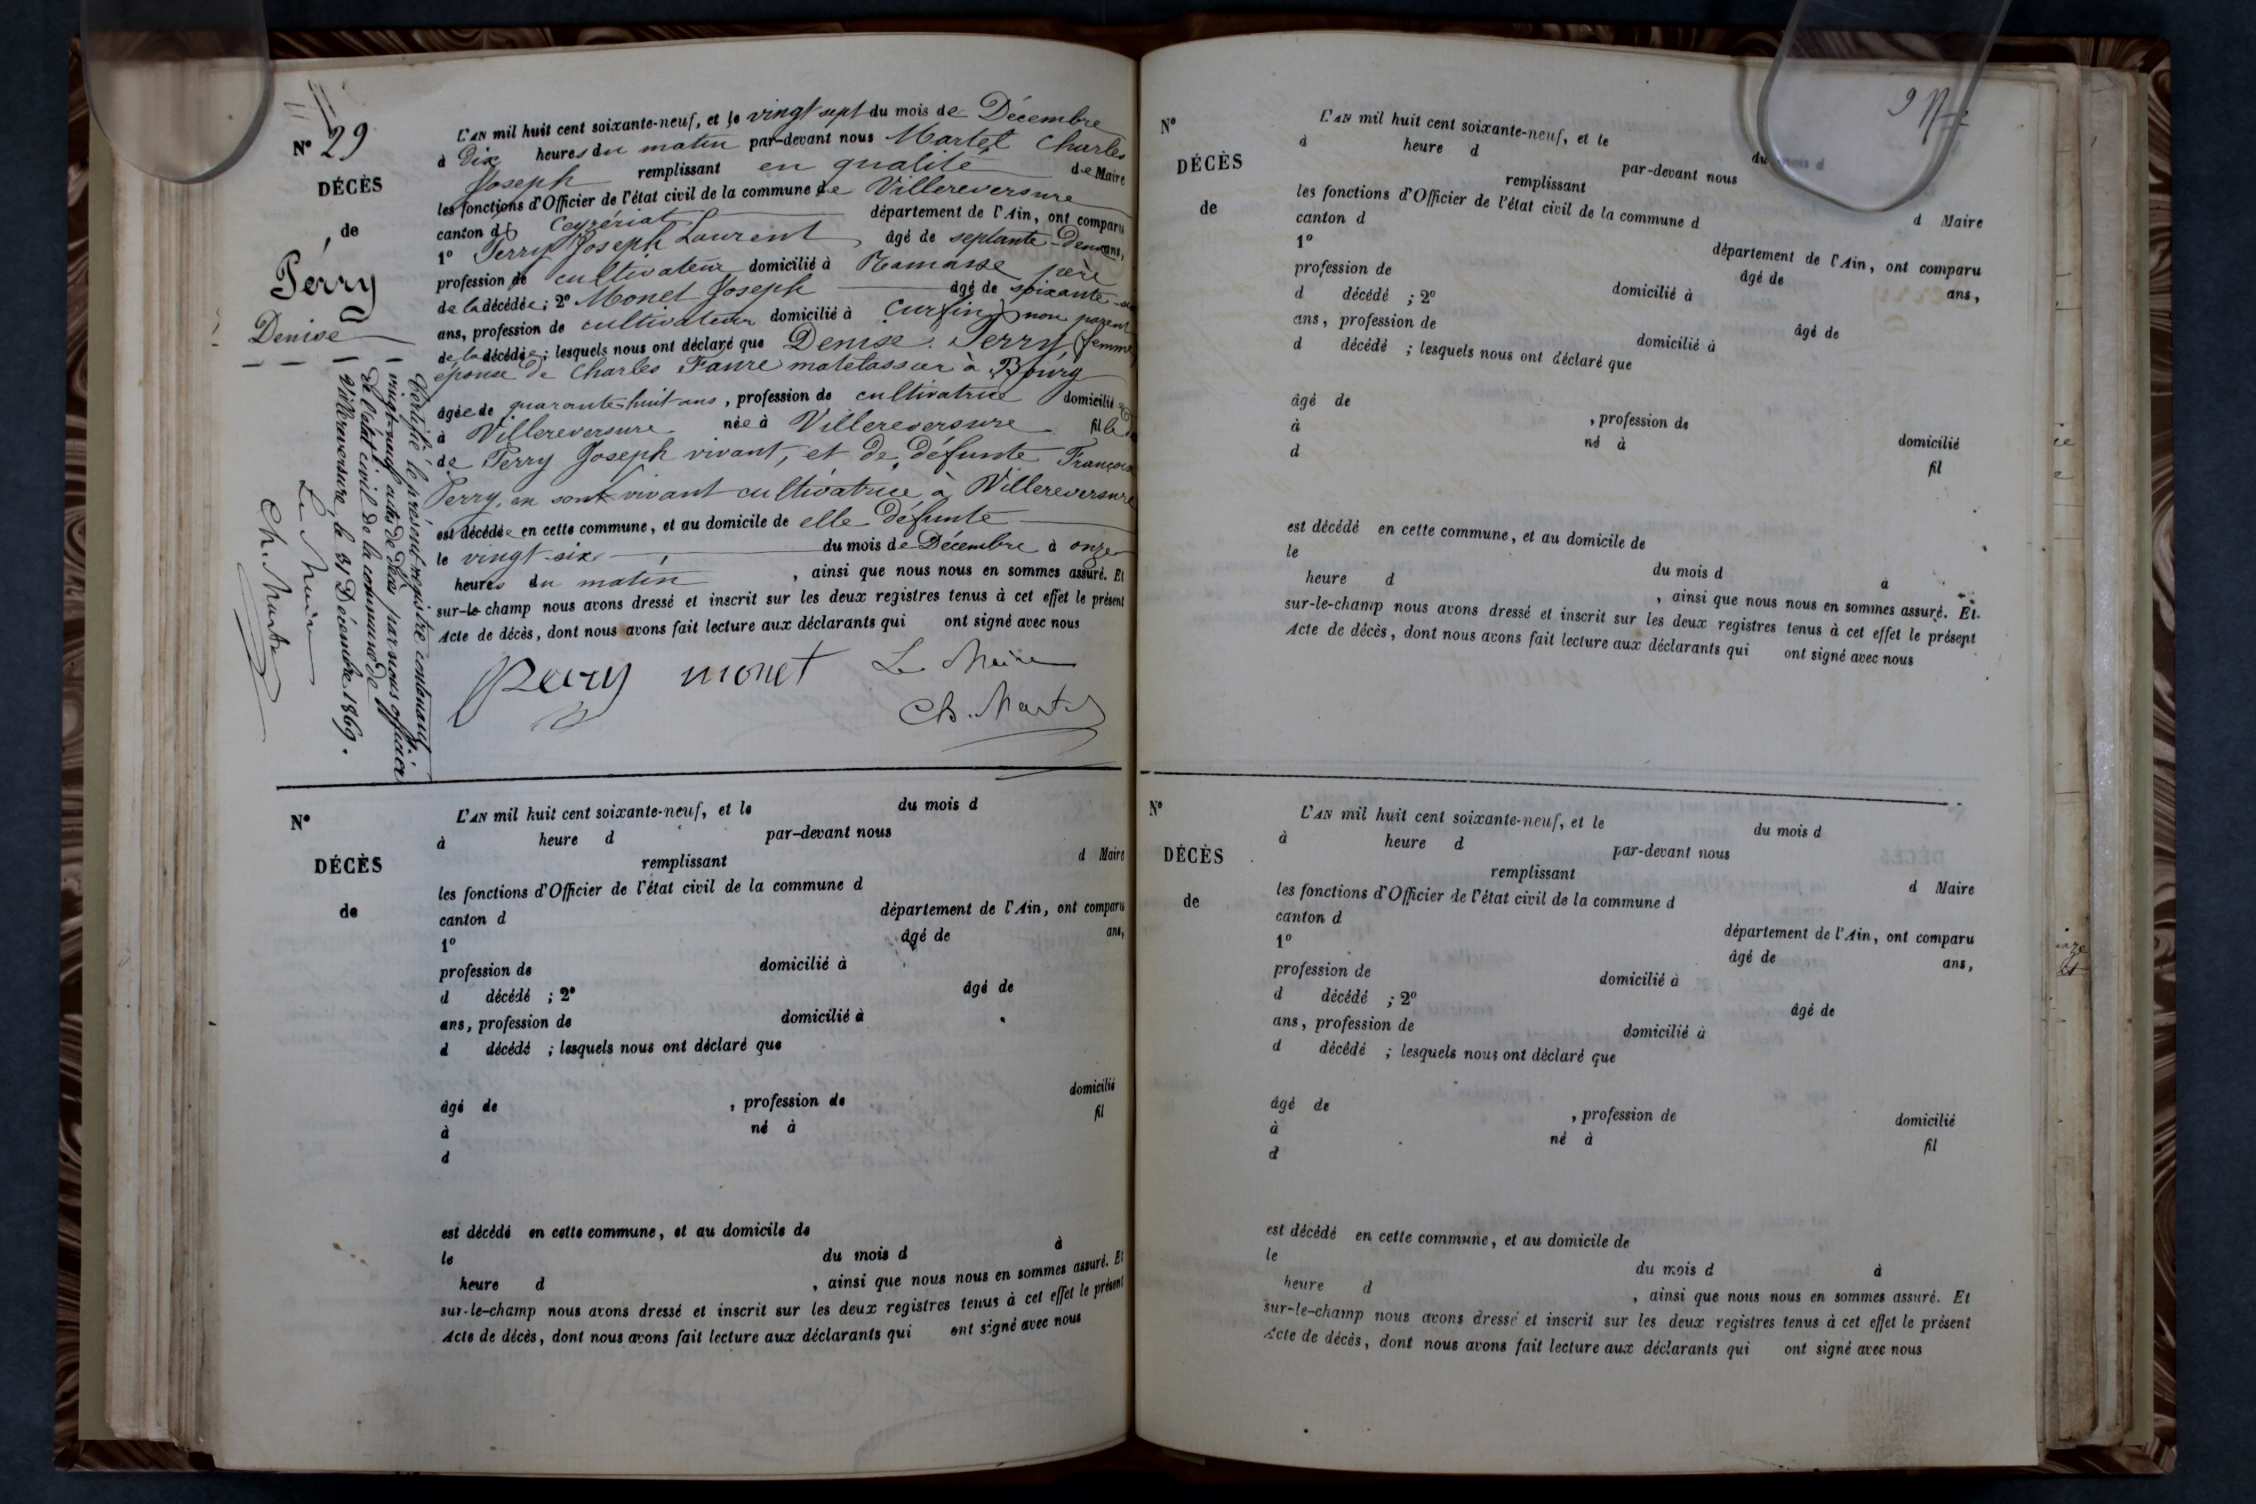 N° 29
DÉCÈS
de
Perry
Denise
L'AN mil huit cent soixante-neuf, et le vingt sept du mois de Décembre
à Dix heures du matin par-devant nous Martel Charles
Joseph remplissant en qualité de Maire
les fonctions d'Officier de l'état civil de la commune de Villereversure
canton de Ceyzériat département de l'Ain, ont comparu
1° Perry Joseph Laurent âgé de septante-deux ans,
profession de cultivateur domicilié à Ramasse père
de la décédée ; 2° Monet Joseph âgé de soixante
ans, profession de cultivateur domicilié à Curfin non parent
de la décédée ; lesquels nous ont déclaré que Denise Perry femme
épouse de Charles Favre matelassier à Bourg
âgée de quarante huit ans, profession de cultivatrice domiciliée
à Villereversure née à Villereversure fille
de Perry Joseph vivant, et de défunte Françoise
Perry, en son vivant cultivatrice à Villereversure
est décédée en cette commune, et au domicile de elle défunte
le vingt-six du mois de Décembre à onze
heures du matin, ainsi que nous nous en sommes assuré. Et
sur-le-champ nous avons dressé et inscrit sur les deux registres tenus à cet effet le présent
Acte de décès, dont nous avons fait lecture aux déclarants qui ont signé avec nous
Perry monet Le Maire
Ch. Martel
Certifié le présent registre contenant
vingt-neuf actes de Décès par nous officier
de l'état civil de la commune de
Villereversure, le 31 Décembre 1869.
Le Maire
Ch. Martel
N°
DÉCÈS
de
L'AN mil huit cent soixante-neuf, et le du mois d
à heure d par-devant nous
remplissant d Maire
les fonctions d'Officier de l'état civil de la commune d
canton d département de l'Ain, ont comparu
1° âgé de ans,
profession de domicilié à
d décédé ; 2° âgé de
ans, profession de domicilié à
d décédé ; lesquels nous ont déclaré que
âgé de , profession de domicilié
à né à fil
d
est décédé en cette commune, et au domicile de
le du mois d à
heure d , ainsi que nous nous en sommes assuré. Et
sur-le-champ nous avons dressé et inscrit sur les deux registres tenus à cet effet le présent
Acte de décès, dont nous avons fait lecture aux déclarants qui ont signé avec nous
N°
DÉCÈS
de
L'AN mil huit cent soixante-neuf, et le du mois d
à heure d par-devant nous
remplissant d Maire
les fonctions d'Officier de l'état civil de la commune d
canton d département de l'Ain, ont comparu
1° âgé de ans,
profession de domicilié à
d décédé ; 2° âgé de
ans, profession de domicilié à
d décédé ; lesquels nous ont déclaré que
âgé de , profession de domicilié
à né à fil
d
est décédé en cette commune, et au domicile de
le du mois d à
heure d , ainsi que nous nous en sommes assuré. Et
sur-le-champ nous avons dressé et inscrit sur les deux registres tenus à cet effet le présent
Acte de décès, dont nous avons fait lecture aux déclarants qui ont signé avec nous
N°
DÉCÈS
de
L'AN mil huit cent soixante-neuf, et le du mois d
à heure d par-devant nous
remplissant d Maire
les fonctions d'Officier de l'état civil de la commune d
canton d département de l'Ain, ont comparu
1° âgé de ans,
profession de domicilié à
d décédé ; 2° âgé de
ans, profession de domicilié à
d décédé ; lesquels nous ont déclaré que
âgé de , profession de domicilié
à né à fil
d
est décédé en cette commune, et au domicile de
le du mois d à
heure d , ainsi que nous nous en sommes assuré. Et
sur-le-champ nous avons dressé et inscrit sur les deux registres tenus à cet effet le présent
Acte de décès, dont nous avons fait lecture aux déclarants qui ont signé avec nous